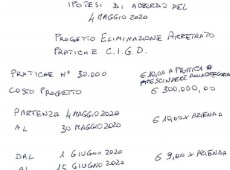 IPOTESI DI ACCORDO DEL
4 MAGGIO 2020
PROGETTO ELIMINAZIONE ARRETRATO
PRATICHE C.I.G.D.
PRATICHE N° 30.000 €10,00 A PRATICA A
PRESCINDERE DALLA
COSTO PROGETTO € 300.000,00
PARTENZA 4 MAGGIO 2020
AL 30 MAGGIO 2020 € 10,00 x AZIENDA
DAL 1 GIUGNO 2020
AL 15 GIUGNO 2020 € 9,00 x AZIENDA